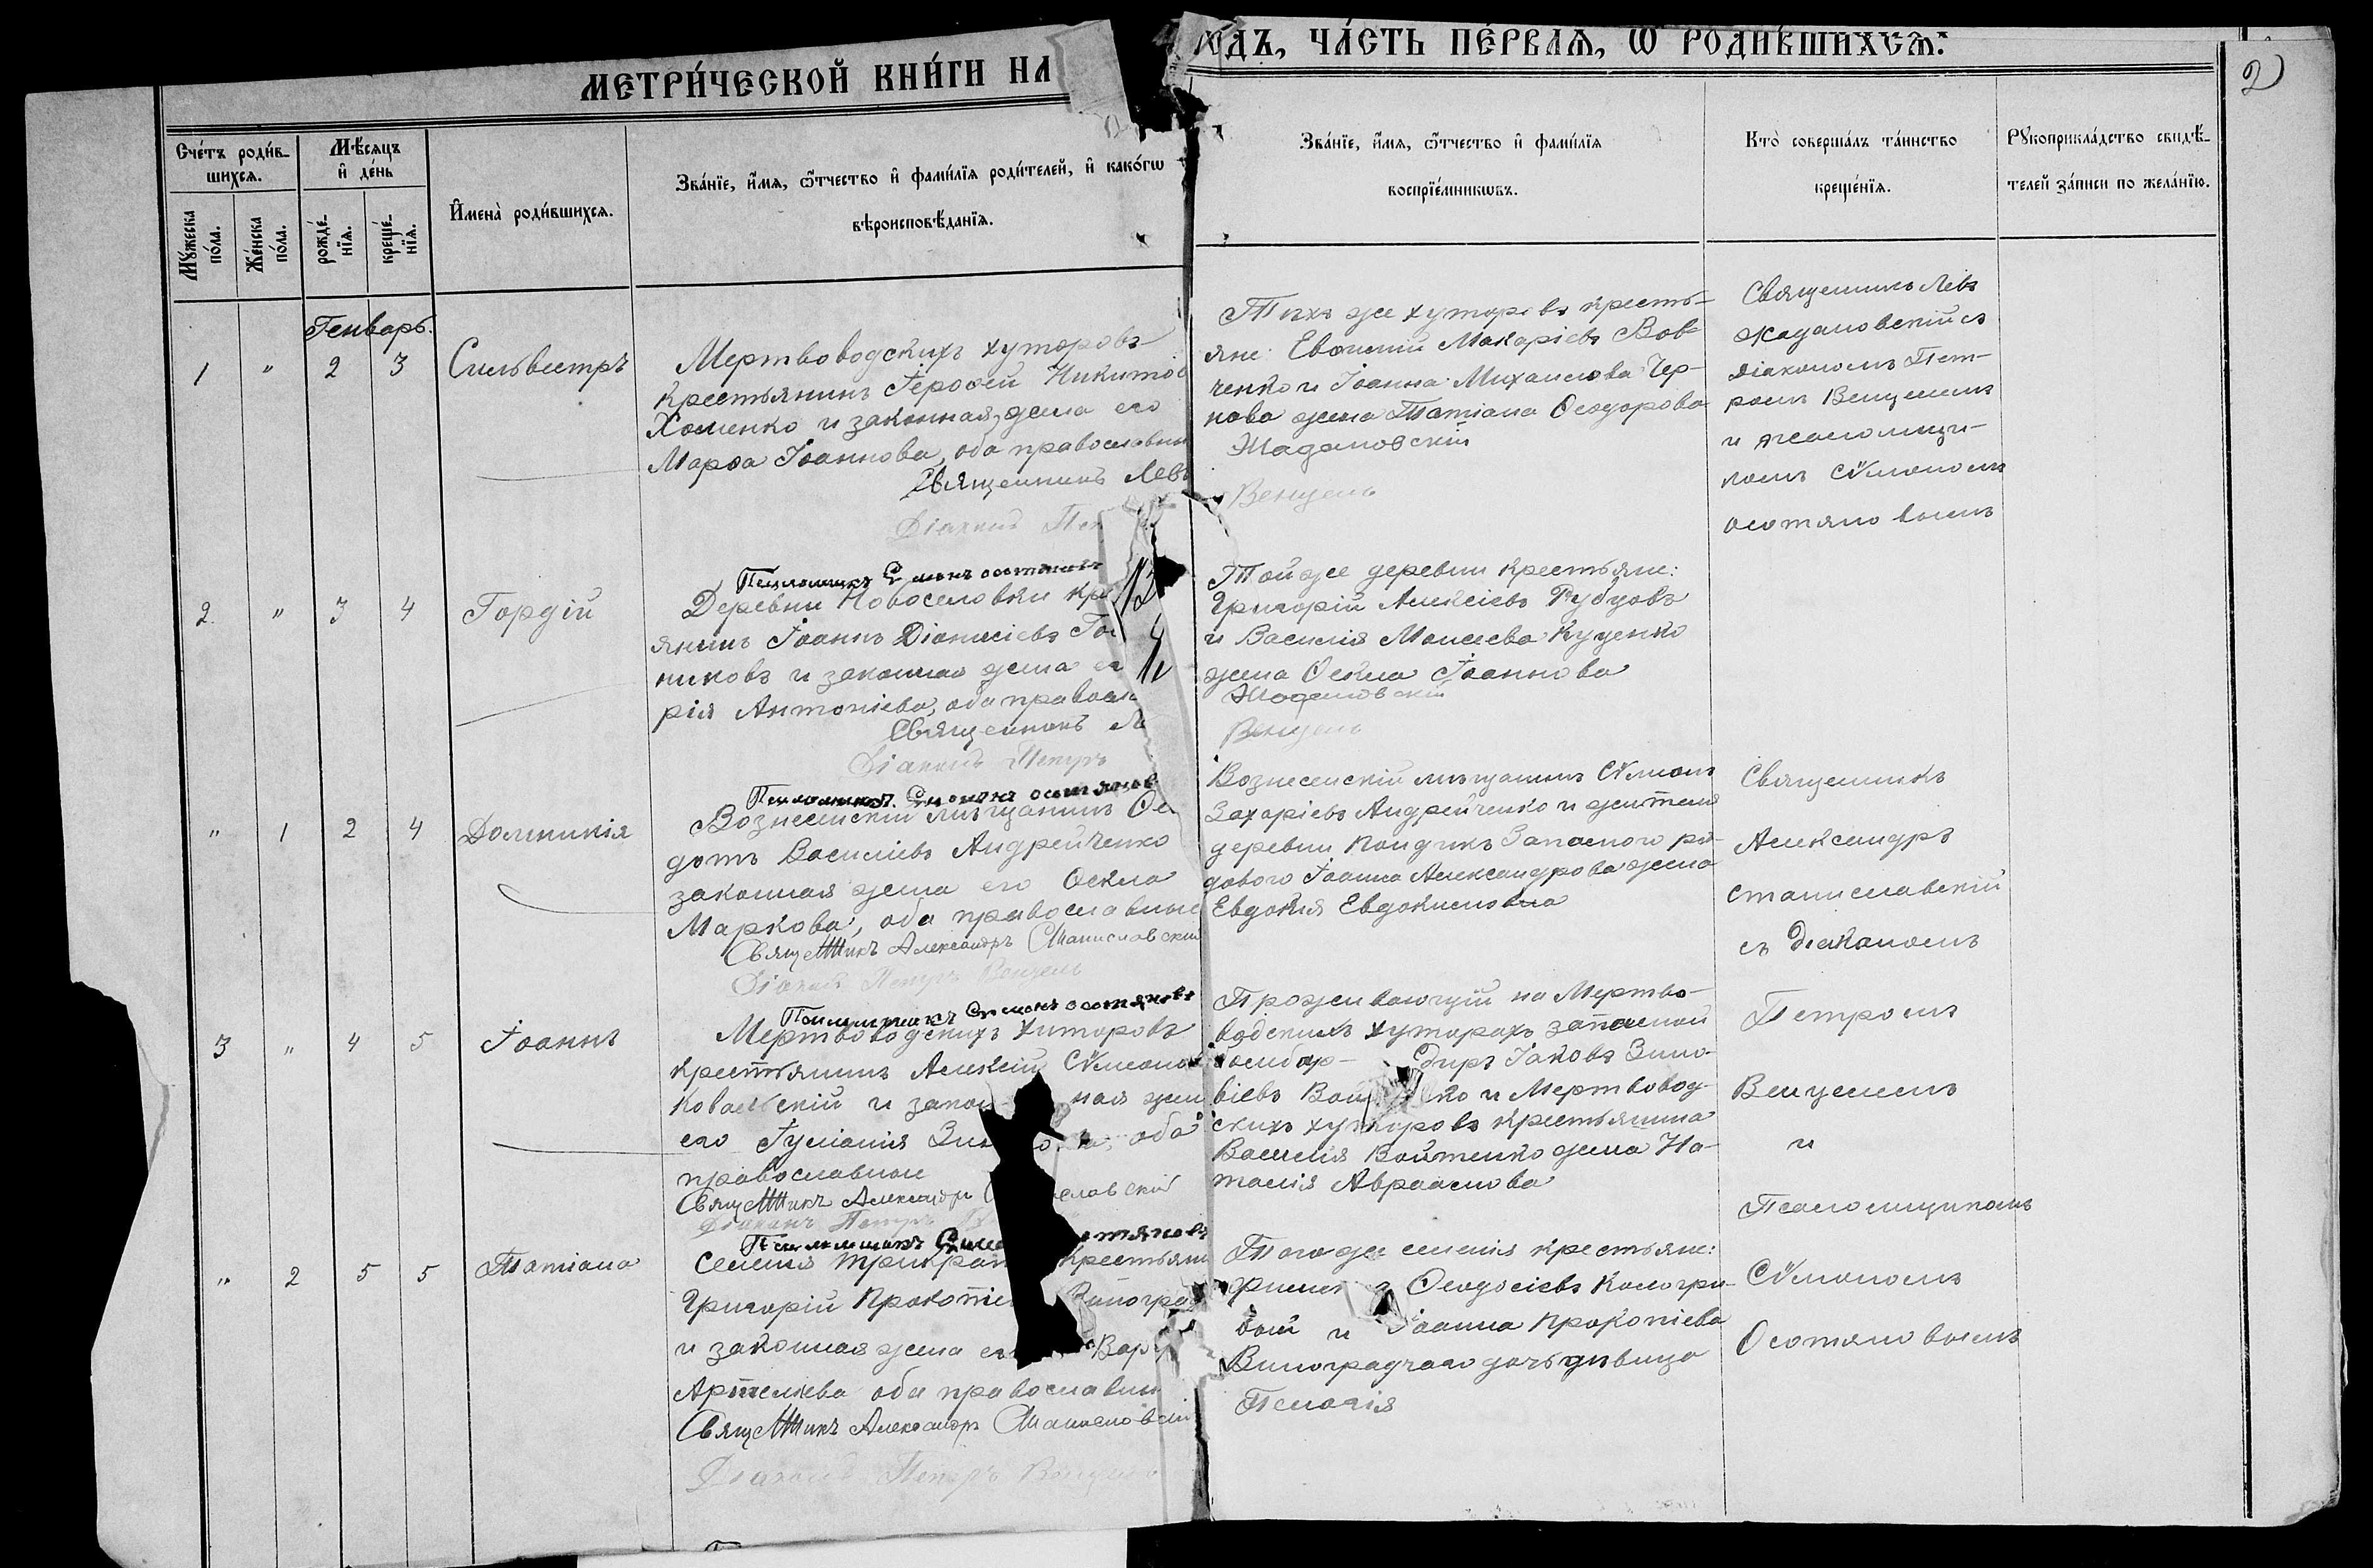 МЕТРИ́ЧЕСКОЙ КНИ́ГИ НА
ОДЪ, ЧА́СТЬ ПЕ́РВАѦ, Ѡ РОДИ́ВШИХСѦ:
2
Сче́тъ роди́в-
шихсѧ.
Мꙋ́жеска
по́ла.
Же́нска
по́ла.
Мѣ́сѧцъ
и҆ де́нь
рожде́-
нїѧ.
креще́-
нїѧ.
И҆мена̀ роди́вшихсѧ.
Зва́нїе, и҆́мѧ, ѻ҆́тчество и҆ фами́лїѧ роди́телей, и҆ како́гѡ
вѣроисповѣ́данїѧ.
Зва́нїе, и҆́мѧ, ѻ҆́тчество и҆ фами́лїѧ
воспрїе́мникѡвъ.
Кто̀ соверша́лъ та́инство
креще́нїѧ.
Рꙋкоприкла́дство свидѣ́-
телей за́писи по жела́нїю.
Генварь.
1 " 2 3 Сильвестръ
Мертвоводскихъ хуторовъ
крестьянинъ Іерофей Никитов
Хоменко и законная жена его
Марѳа Іоаннова, оба православны
Священникъ Левъ
Діаконъ Пет
Псаломщикъ Симонъ Осотяновъ
Тѣхъ же хуторовъ кресть-
яне: Евфимій Макаріевъ Вов-
ченко и Іоанна Михаилова Чер-
нова жена Татіана Ѳеодорова
Жадановскій
Венцель
Священникъ Левъ
Жадановскій съ
діакономъ Пет-
ромъ Венцелемъ
и псаломщи-
комъ Сѵмономъ
Осотяновымъ
2 " 3 4 Гордій
Деревни Новоселовки кре
янинъ Іоаннъ Діонисіевъ
никовъ и законная жена ег
рія Антоніева, оба правосл
Священникъ Л
Діаконъ Петръ
Псаломщикъ Симонъ Осотянов
Той же деревни крестьяне:
Григорій Алексіевъ Рубцовъ
и Василія Моисеева Куценко
жена Ѳекла Іоаннова
Жадановскій
Венцель
" 1 2 4 Домникія
Вознесенскій мѣщанинъ Ѳе
дотъ Василіевъ Андрейченко
законная жена его Ѳекла
Маркова, оба православные
Священникъ Александръ Станиславскій
Діаконъ Петръ Венцель
Псаломщикъ Симонъ Осотяновъ
Вознесенскій мѣщанинъ Сѵмонъ
Захаріевъ Андрейченко и жителя
деревни Кондикъ Запасного ря-
дового Іоанна Александрова жена
Евдокія Евдокимовна
Священникъ
Александръ
Станиславскій
съ Діакономъ
Петромъ
Венцелемъ
и
Псаломщикомъ
Сѵмономъ
Осотяновымъ
3 " 4 5 Іоаннъ
Мертвоводскихъ Хуторовъ
крестьянинъ Алексій Сѵмонов
Ковальскій и закон ная жен
его Іуліанія Зин оба
православные
Священникъ Александръ С славскій
Діаконъ Петръ
Псаломщикъ Симо отяновъ
Проживающій на Мертво-
водскихъ хуторахъ запасной
бомбар- диръ Іаковъ Зино-
віевъ Вой ко и Мертвовод-
скихъ хуторовъ крестьянина
Василія Войтенко жена На-
талія Авраамова
" 2 5 5 Татіана
Селенія Трикрат крестьяни
Григорій Прокопіе Виногра
и законная жена ег Вар
Артемьева оба православны
Священникъ Александръ Станиславскій
Діаконъ Петръ Венцель
Того же селенія крестьяне:
Филип Ѳеодосіевъ Кологри-
вый и Іоанна Прокопіева
Виноградчаго дочь дѣвица
Пелагія